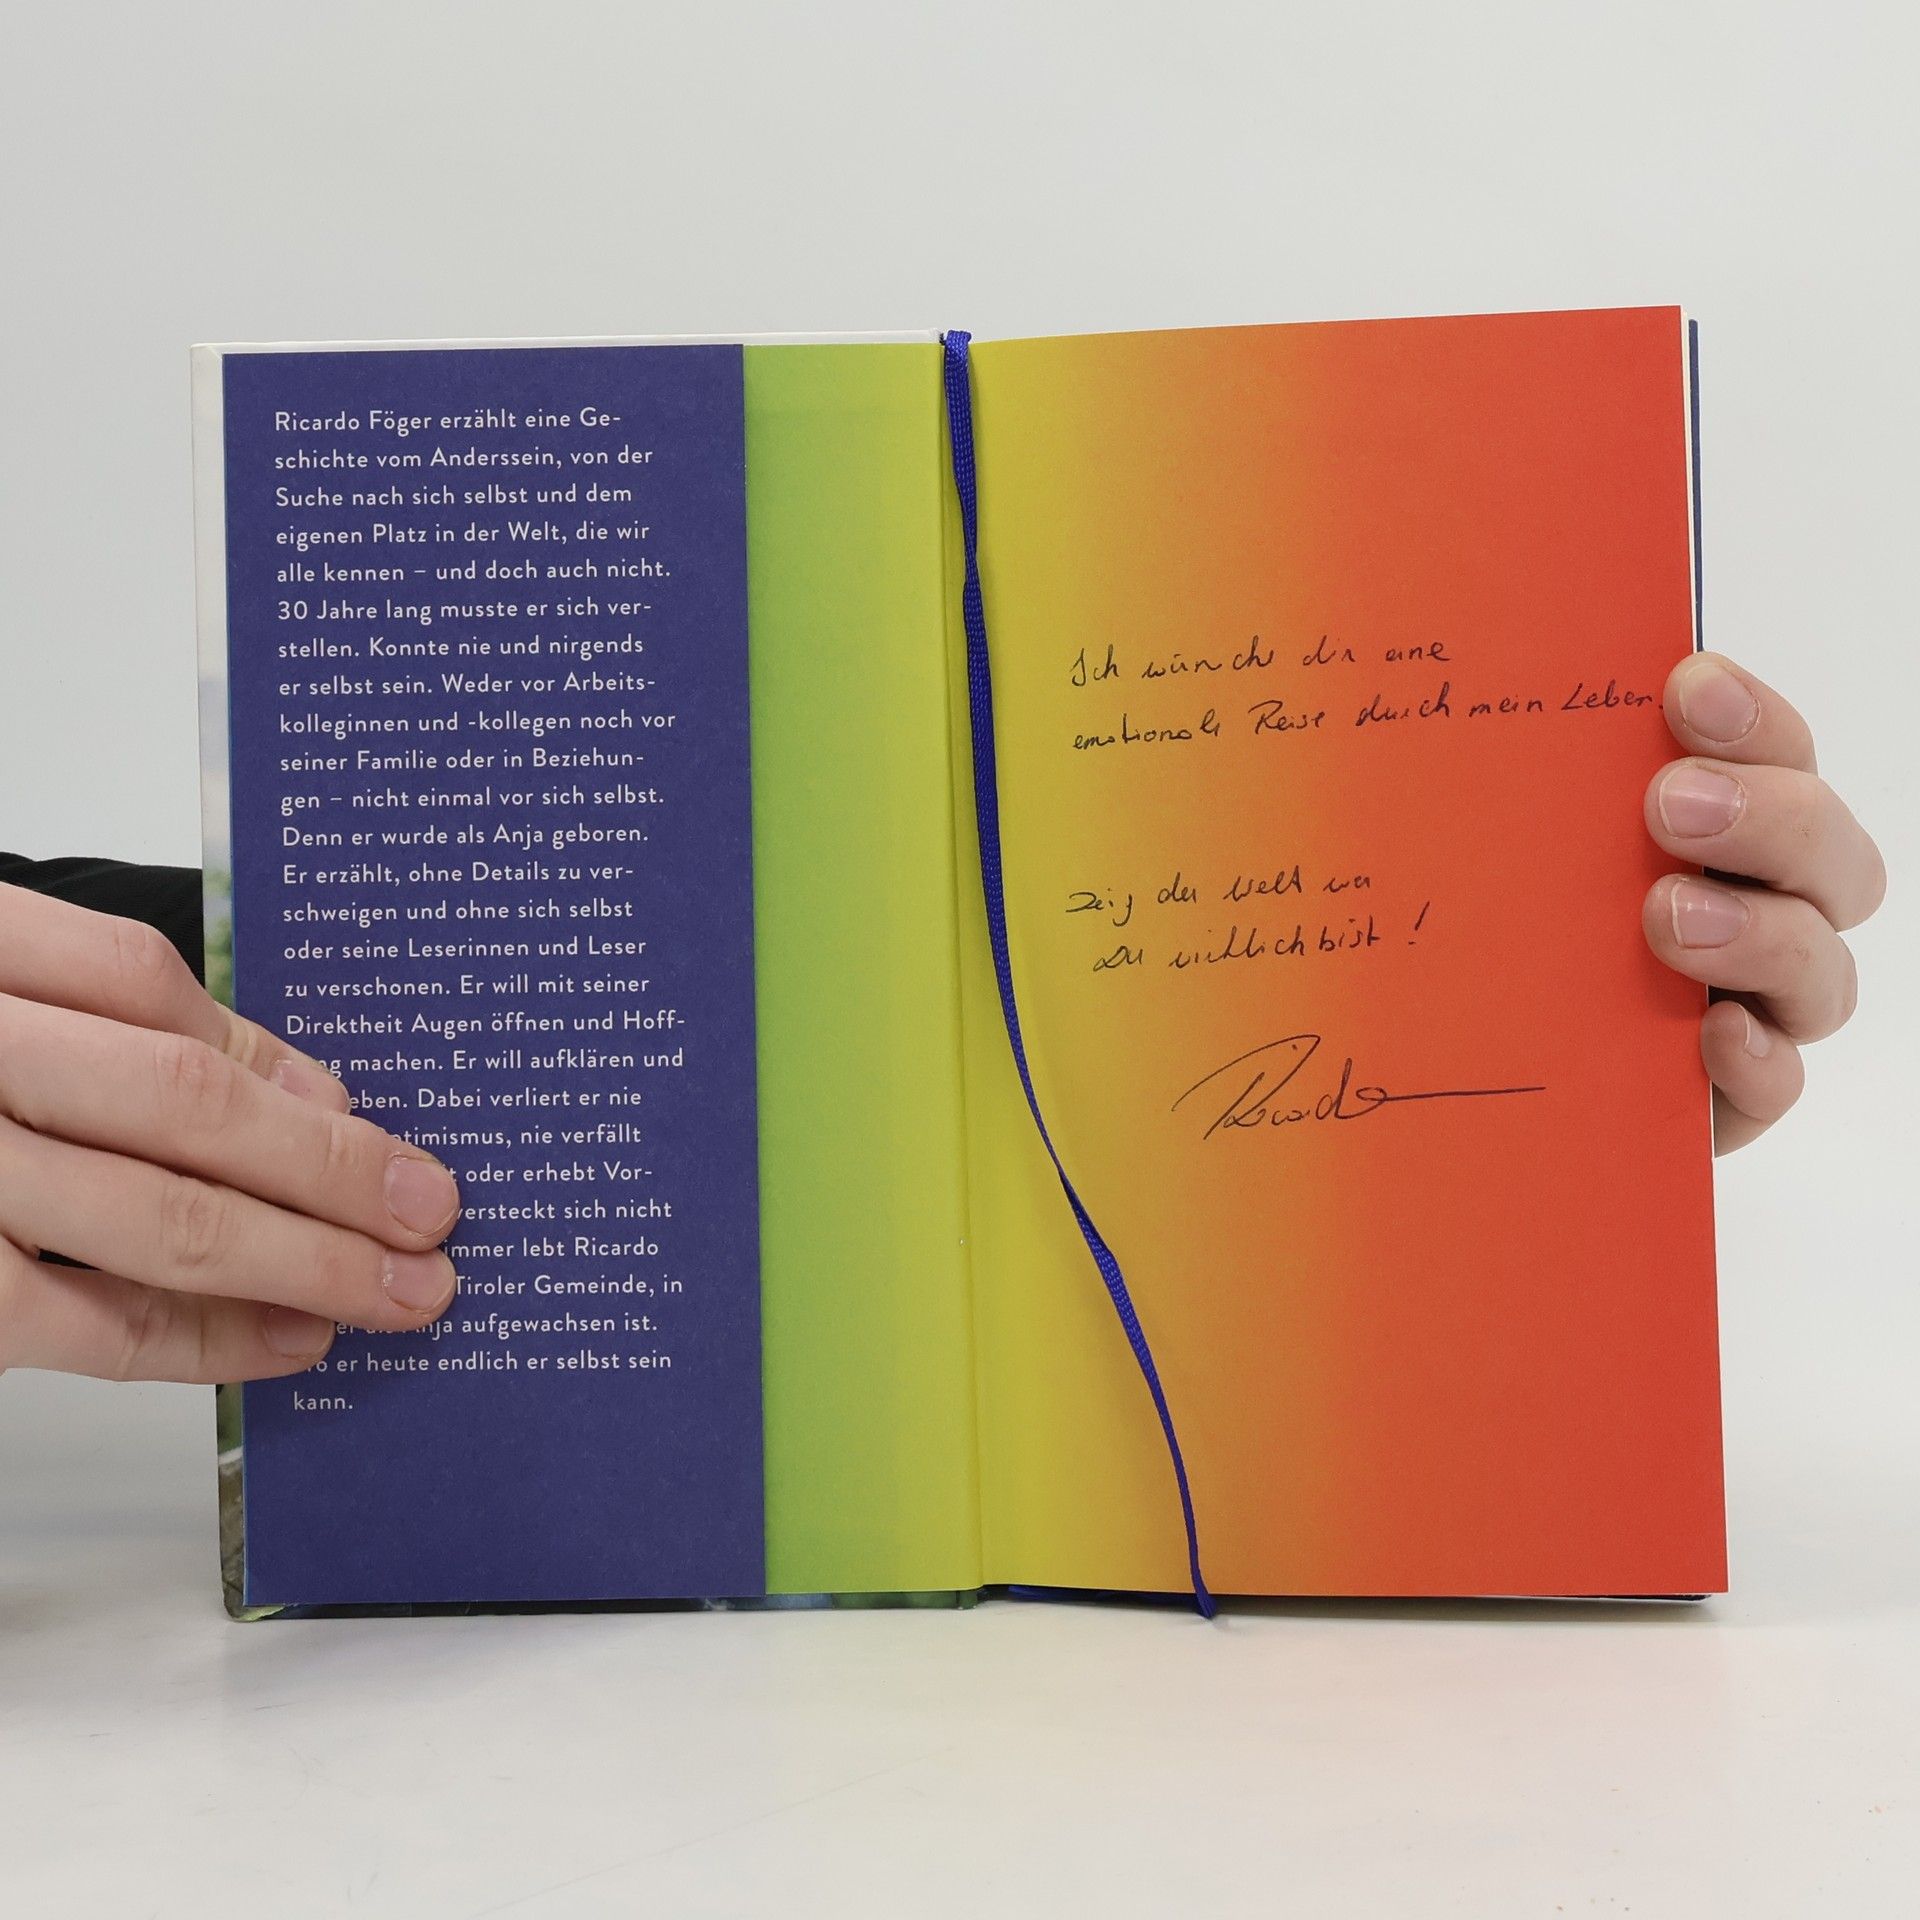 Ricardo Föger erzählt eine Ge-
schichte vom Anderssein, von der
Suche nach sich selbst und dem
eigenen Platz in der Welt, die wir
alle kennen – und doch auch nicht.
30 Jahre lang musste er sich ver-
stellen. Konnte nie und nirgends
er selbst sein. Weder vor Arbeits-
kolleginnen und -kollegen noch vor
seiner Familie oder in Beziehun-
gen – nicht einmal vor sich selbst.
Denn er wurde als Anja geboren.
Er erzählt, ohne Details zu ver-
schweigen und ohne sich selbst
oder seine Leserinnen und Leser
zu verschonen. Er will mit seiner
Direktheit Augen öffnen und Hoff-
machen. Er will aufklären und
eben. Dabei verliert er nie
timismus, nie verfällt
oder erhebt Vor-
versteckt sich nicht
immer lebt Ricardo
Tiroler Gemeinde, in
aufgewachsen ist.
er heute endlich er selbst sein
kann.
Ich wünsche dir eine
emotionale Reise durch mein Leben.
Zeig der Welt wer
Du wirklich bist !
Ricardo